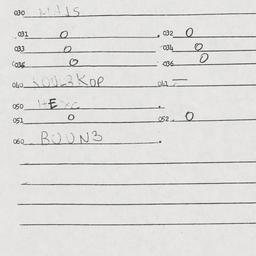 030 MAIS
031 0 032 0
033 0 034 0
035 0 036 0
040 KOOL3KOP 041 —
050
051 0 052 0
060 BOON3